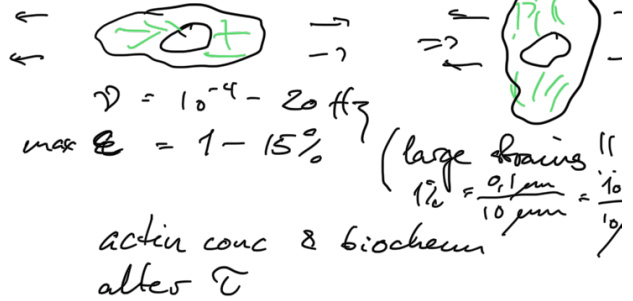 =>
ν = 10⁻⁴ - 20 Hz
max ε = 1 - 15% (large strains !!
1% = 0,1 μm / 10 μm = 10
actin conc & biochem
alter τ